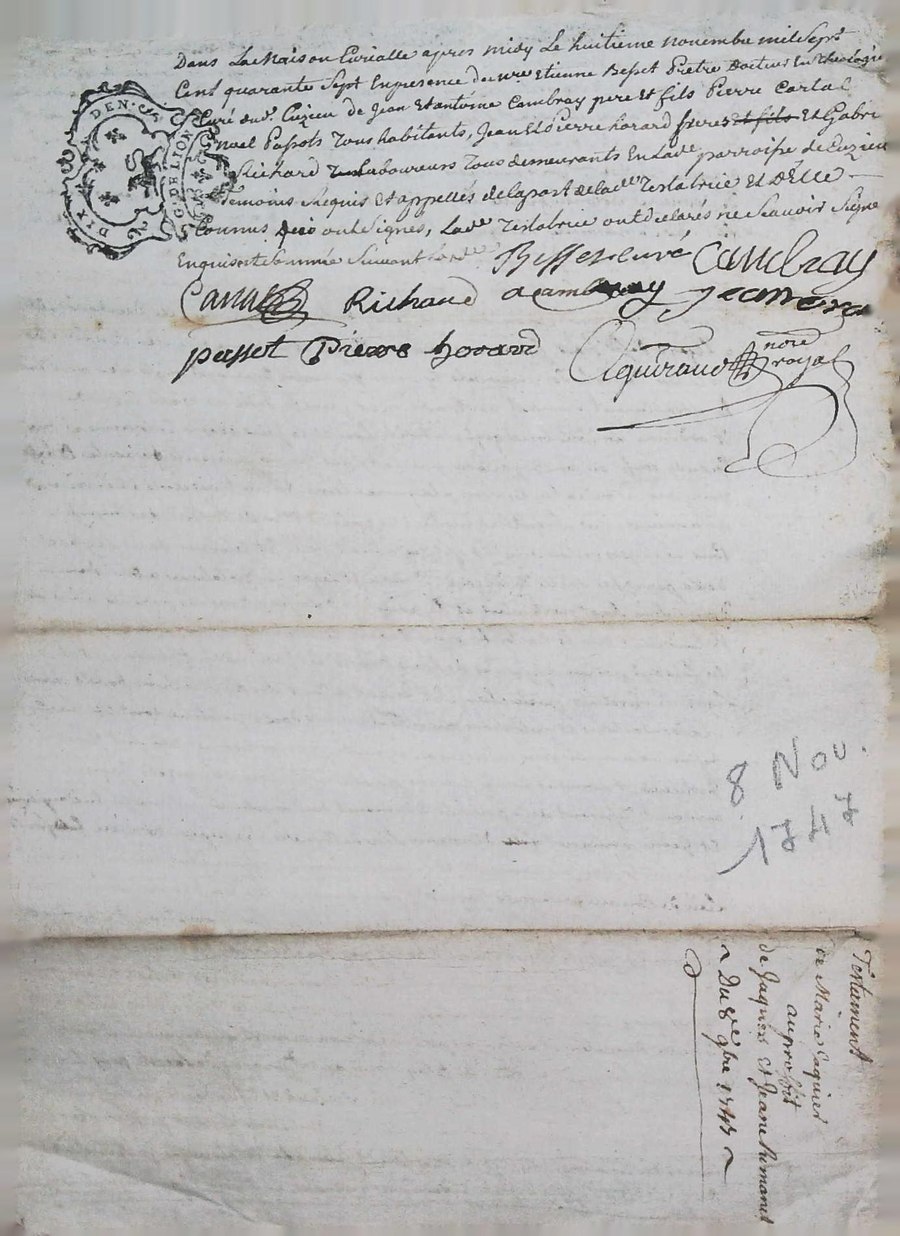 DIX DEN.
G. DE LION
Dans La Maison Curialle apres midy Le huitieme novembre mil Sept
Cent quarante Sept En presence de mre Etienne Besset Pretre Docteur En theologie
Curé dud. Cuzieu de Jean Et antoine Cambray pere Et fils Pierre Cartal
noel Passot Tous habitants, Jean Et Pierre horard freres et fils Et Gabriel
Richard Laboureurs Tous demeurants En Lade parroisse de Cuzieu
Temoins Requis Et appellés de la part de lade Testatrice Et D'Elle
Connus Qui ont Signés, Lade Testatrice ont declarés ne Scavoir Signer
Enquis Et Sommée Suivant
Besset curé Cambray
Richard acambray Jean
passot Pierre horard
Aguiraud nore
royal
8 Nov.
1747
Testament
de Marie Jaquier
au proffit
de Jaques Et Jeane
Du 8e 9bre 1747